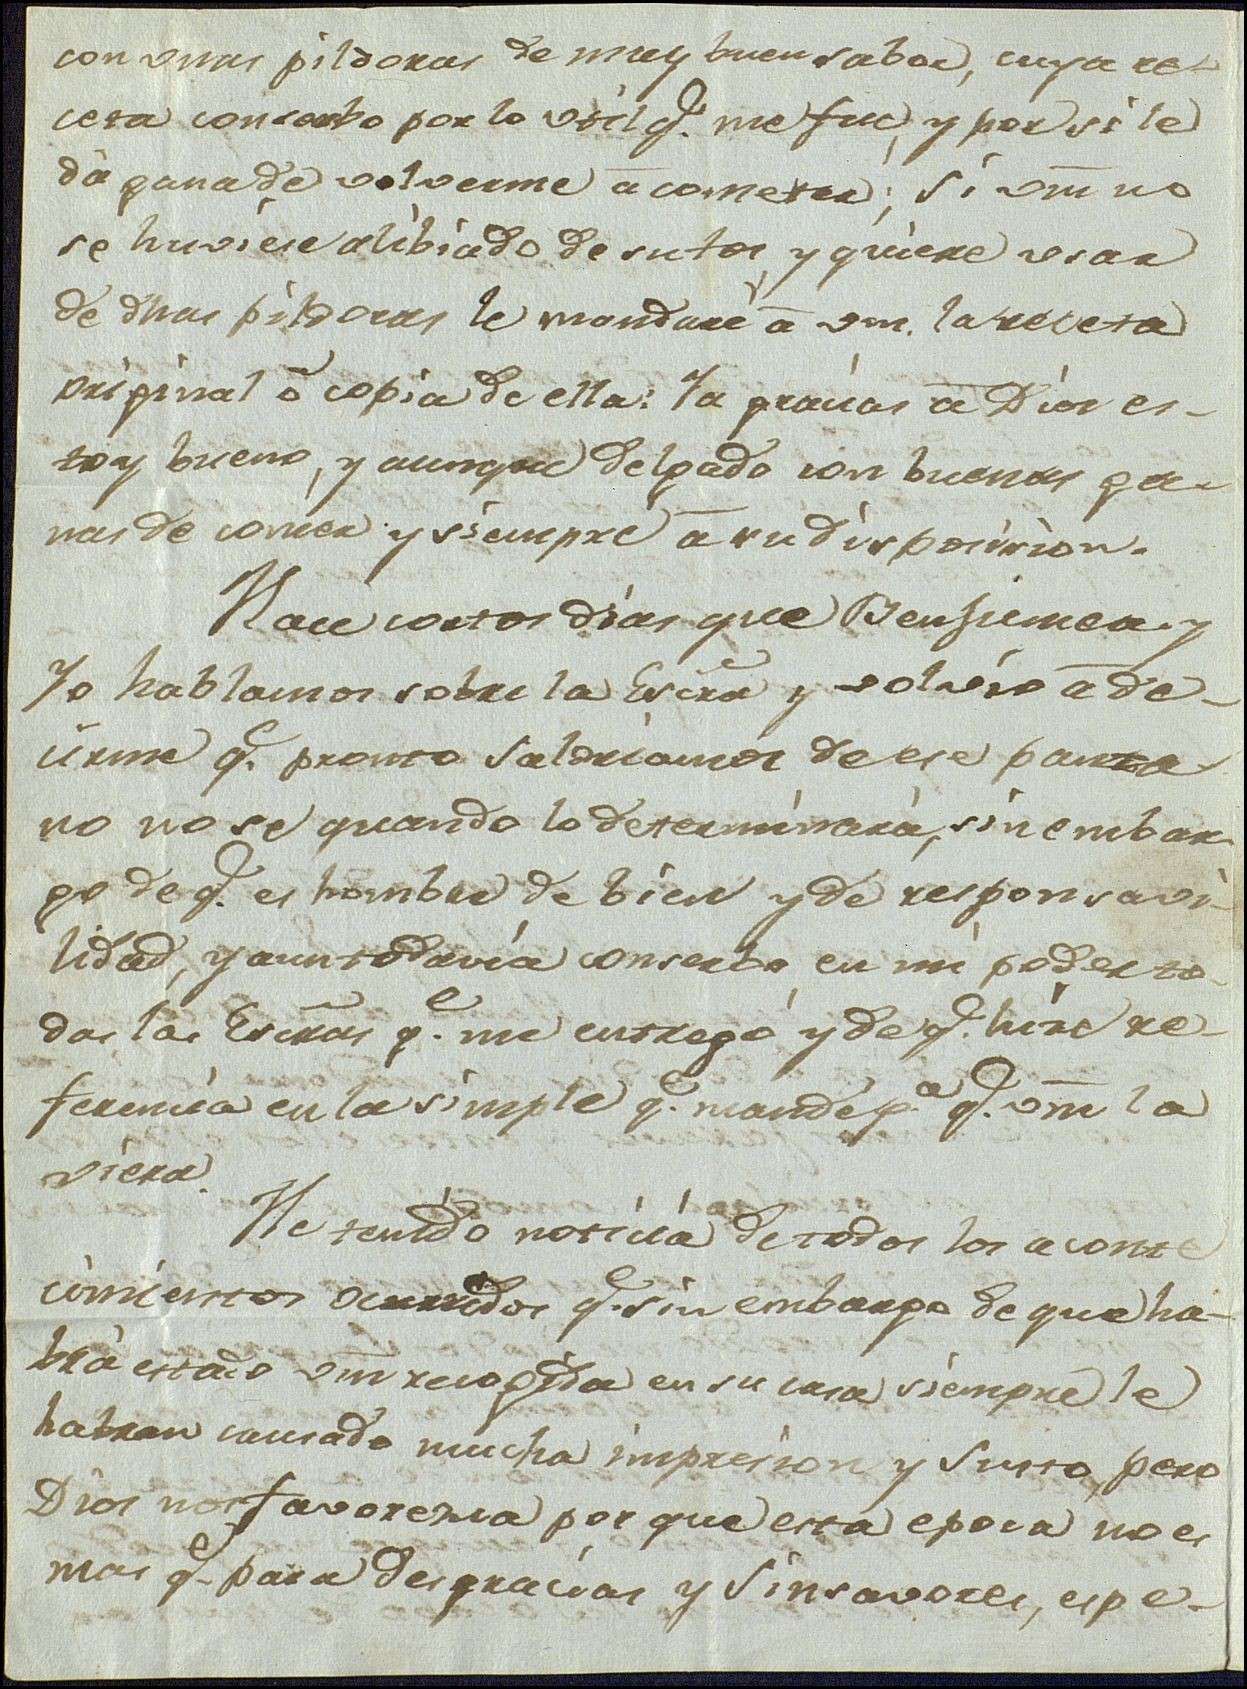 con unas pildoras de muy buen sabor, cuya re-
ceta conserbo por lo util q.e me fue, y por si le
dá gana de volverme á cometer; si vm no
se huviese alibiado de su tos, y quiere usar
de dhas pildoras le mandaré á vm. la receta
original ó copia de ella: Ya gracias á Dios es-
toy bueno, y aunque delgado con buenas ga-
nas de comer y siempre á su disposision.
Hace cortos dias que Benjumea y
Yo hablamos sobre la Escra y volvió á de-
cirme q.e pronto saldriamos de ese panta
no no se quando lo determinará, sin embar-
go de q.e es hombre de bien y de responsavi-
lidad, y aun todavia conserbo en mi poder to-
das las Escras q.e me entregó y de q.e hize re-
ferencia en la simple q.e mandé p.a q.e vm la
viera.
He tenido noticia de todos los aconte
cimientos ocurridos q.e sin embargo de que ha-
brá estado vm recogida en su casa siempre le
habran causado mucha impresion y susto, pero
Dios nos favorezca por que esta epoca no es
mas q.e para desgracias y sinsavores, espe-